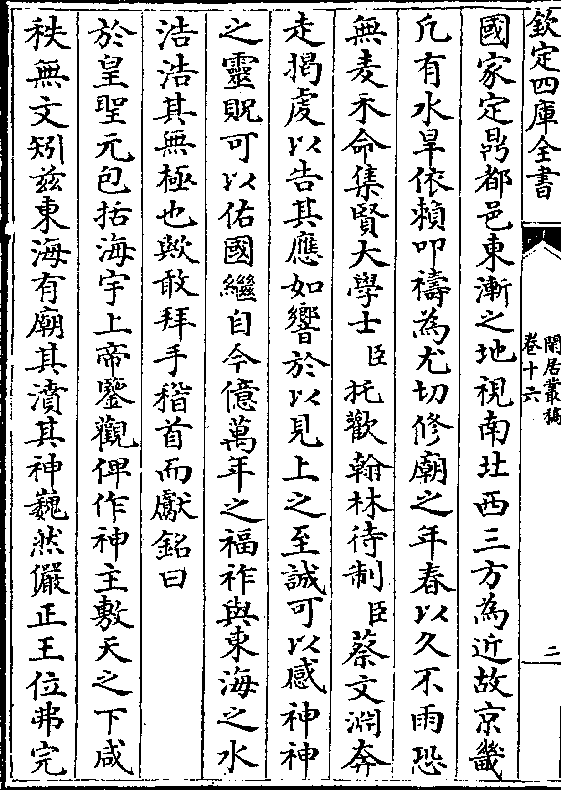 欽定四庫全書
閒居叢稿
卷十六
二
國家定鼎都邑東漸之地視南北西三方為近故京畿
凡有水旱依賴叩禱為尤切修廟之年春以久不雨恐
無麦禾命集賢大學士臣托歡翰林待制臣蔡文淵奔
走掲䖍以告其應如響於以見上之至誠可以感神神
之靈貺可以佑國繼自今億萬年之福祚與東海之水
浩浩其無極也歟敢拜手稽首而獻銘曰
於皇聖元包括海宇上帝鑒觀俾作神主敷天之下咸
秩無文矧兹東海有廟其濆其神巍然儼正王位弗完